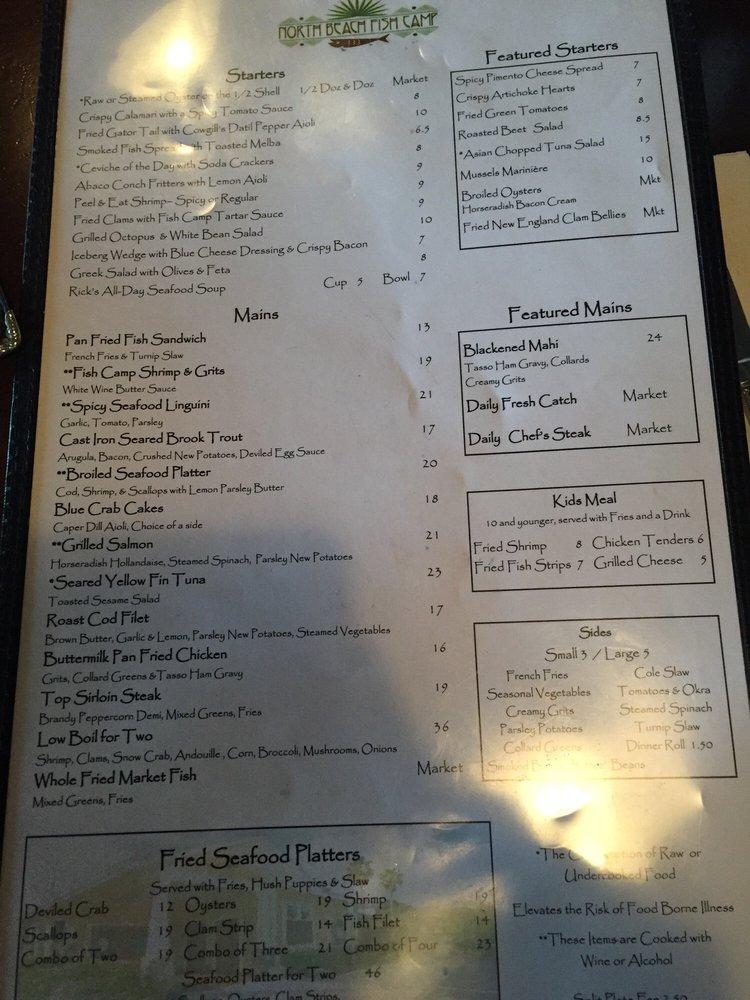 NORTH BEACH FISH CAMP
Starters
*Raw or Steamed Oyster on the 1/2 Shell 1/2 Doz & Doz Market
Crispy Calamari with a Spicy Tomato Sauce 8
Fried Gator Tail with Cowgill's Datil Pepper Aioli 10
Smoked Fish Spread with Toasted Melba 6.5
*Ceviche of the Day with Soda Crackers 8
Abaco Conch Fritters with Lemon Aioli 9
Peel & Eat Shrimp~ Spicy or Regular 9
Fried Clams with Fish Camp Tartar Sauce 9
Grilled Octopus & White Bean Salad 10
Iceberg Wedge with Blue Cheese Dressing & Crispy Bacon 7
Greek Salad with Olives & Feta 8
Rick's All-Day Seafood Soup Cup 5 Bowl 7
Mains
Pan Fried Fish Sandwich 13
French Fries & Turnip Slaw
**Fish Camp Shrimp & Grits 19
White Wine Butter Sauce
**Spicy Seafood Linguini 21
Garlic, Tomato, Parsley
Cast Iron Seared Brook Trout 17
Arugula, Bacon, Crushed New Potatoes, Deviled Egg Sauce
**Broiled Seafood Platter 20
Cod, Shrimp, & Scallops with Lemon Parsley Butter
Blue Crab Cakes 18
Caper Dill Aioli, Choice of a side
**Grilled Salmon 21
Horseradish Hollandaise, Steamed Spinach, Parsley New Potatoes
*Seared Yellow Fin Tuna 23
Toasted Sesame Salad
Roast Cod Filet 17
Brown Butter, Garlic & Lemon, Parsley New Potatoes, Steamed Vegetables
Buttermilk Pan Fried Chicken 16
Grits, Collard Greens & Tasso Ham Gravy
Top Sirloin Steak 19
Brandy Peppercorn Demi, Mixed Greens, Fries
Low Boil for Two 36
Shrimp, Clams, Snow Crab, Andouille, Corn, Broccoli, Mushrooms, Onions
Whole Fried Market Fish Market
Mixed Greens, Fries
Featured Starters
Spicy Pimento Cheese Spread 7
Crispy Artichoke Hearts 7
Fried Green Tomatoes 8
Roasted Beet Salad 8.5
*Asian Chopped Tuna Salad 15
Mussels Marinière 10
Broiled Oysters Mkt
Horseradish Bacon Cream
Fried New England Clam Bellies Mkt
Featured Mains
Blackened Mahi 24
Tasso Ham Gravy, Collards
Creamy Grits
Daily Fresh Catch Market
Daily Chef's Steak Market
Kids Meal
10 and younger, served with Fries and a Drink
Fried Shrimp 8 Chicken Tenders 6
Fried Fish Strips 7 Grilled Cheese 5
Sides
Small 3 / Large 5
French Fries Cole Slaw
Seasonal Vegetables Tomatoes & Okra
Creamy Grits Steamed Spinach
Parsley Potatoes Turnip Slaw
Collard Greens Dinner Roll 1.50
Smoked Beans
Fried Seafood Platters
Served with Fries, Hush Puppies & Slaw
Deviled Crab 12 Oysters 19 Shrimp 19
Scallops 19 Clam Strip 14 Fish Filet 14
Combo of Two 19 Combo of Three 21 Combo of Four 23
Seafood Platter for Two 46
Scallops, Oysters, Clam Strips,
*The of Raw or
Undercooked Food
Elevates the Risk of Food Borne Illness
**These Items are Cooked with
Wine or Alcohol